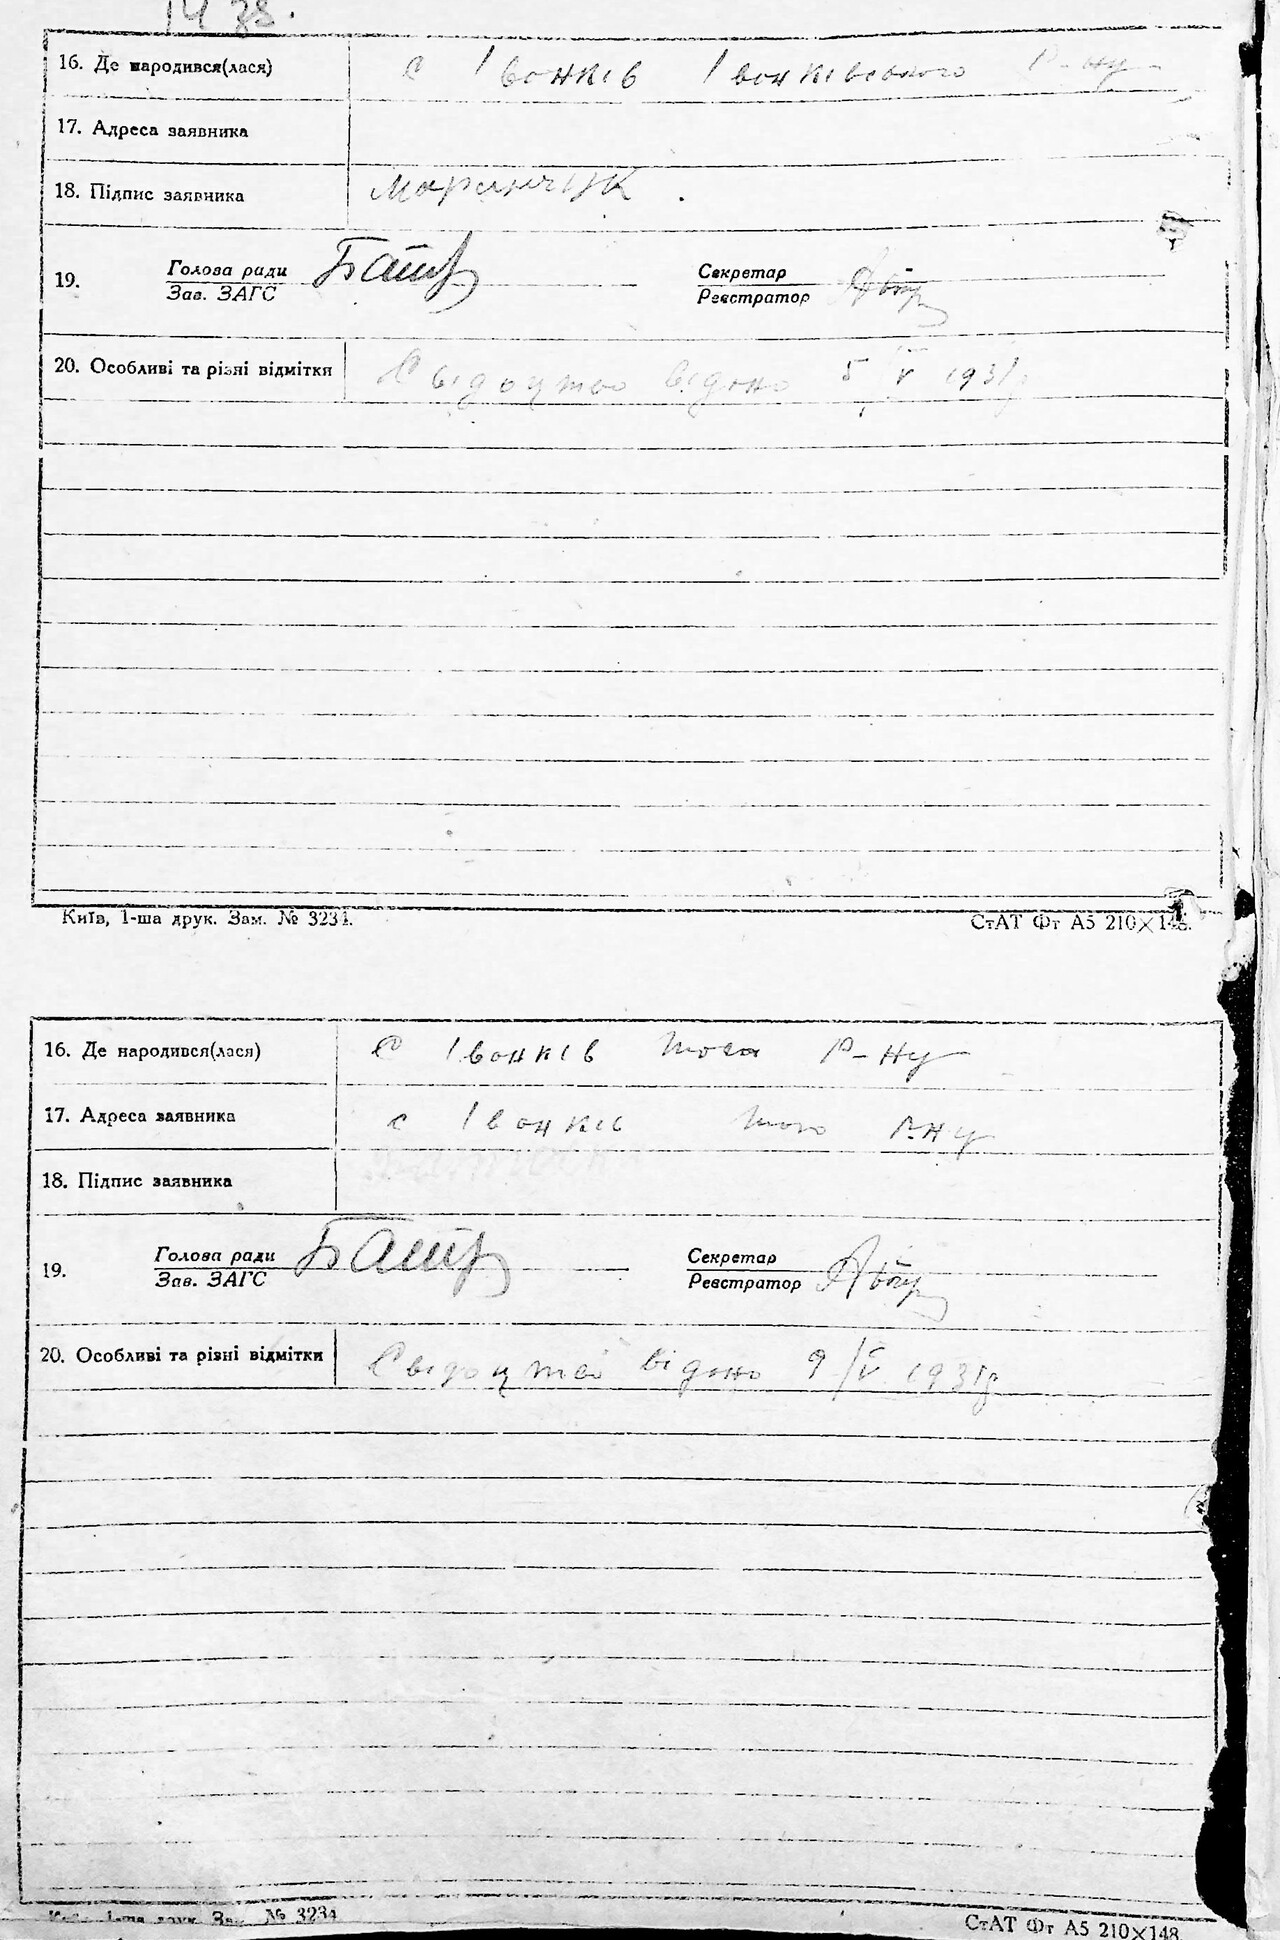 16. Де народився(лася) с Іванків Іванківського р-ну
17. Адреса заявника
18. Підпис заявника Маринчук.
19. Голова ради Секретар
Зав. ЗАГС Реєстратор
20. Особливі та різні відмітки Свідоцтво відано 5/V 1931 р
Київ, 1-ша друк. Зам. № 3234. СтАТ Фт А5 210×148.
16. Де народився(лася) с Іванків того р-ну
17. Адреса заявника с Іванків того р-ну
18. Підпис заявника
19. Голова ради Секретар
Зав. ЗАГС Реєстратор
20. Особливі та різні відмітки Свідоцтво відано 9/V 1931 р
1-ша друк. № 3234 СтАТ Фт А5 210×148.